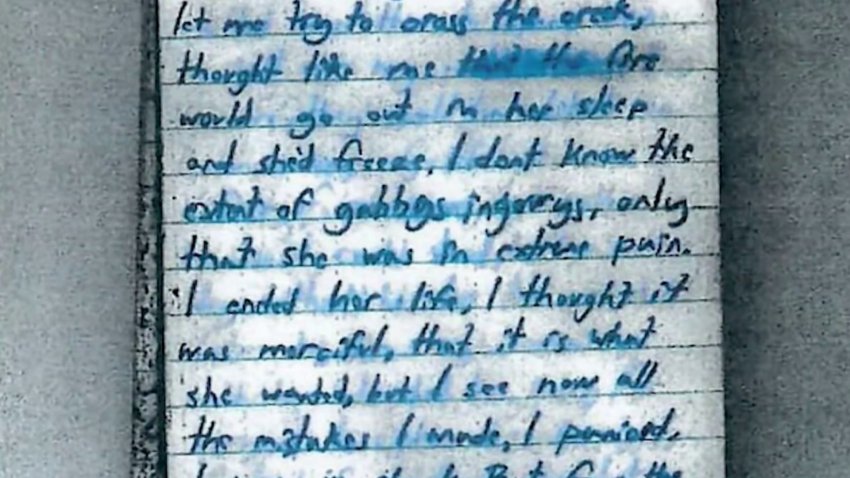 let me try to cross the creek,
thought like me that the fire
would go out in her sleep
and she'd freeze. I dont know the
extent of gabbys ingourys, only
that she was in extreme pain.
I ended her life, I thought it
was merciful, that it is what
she wanted, but I see now all
the mistakes I made. I panicked.